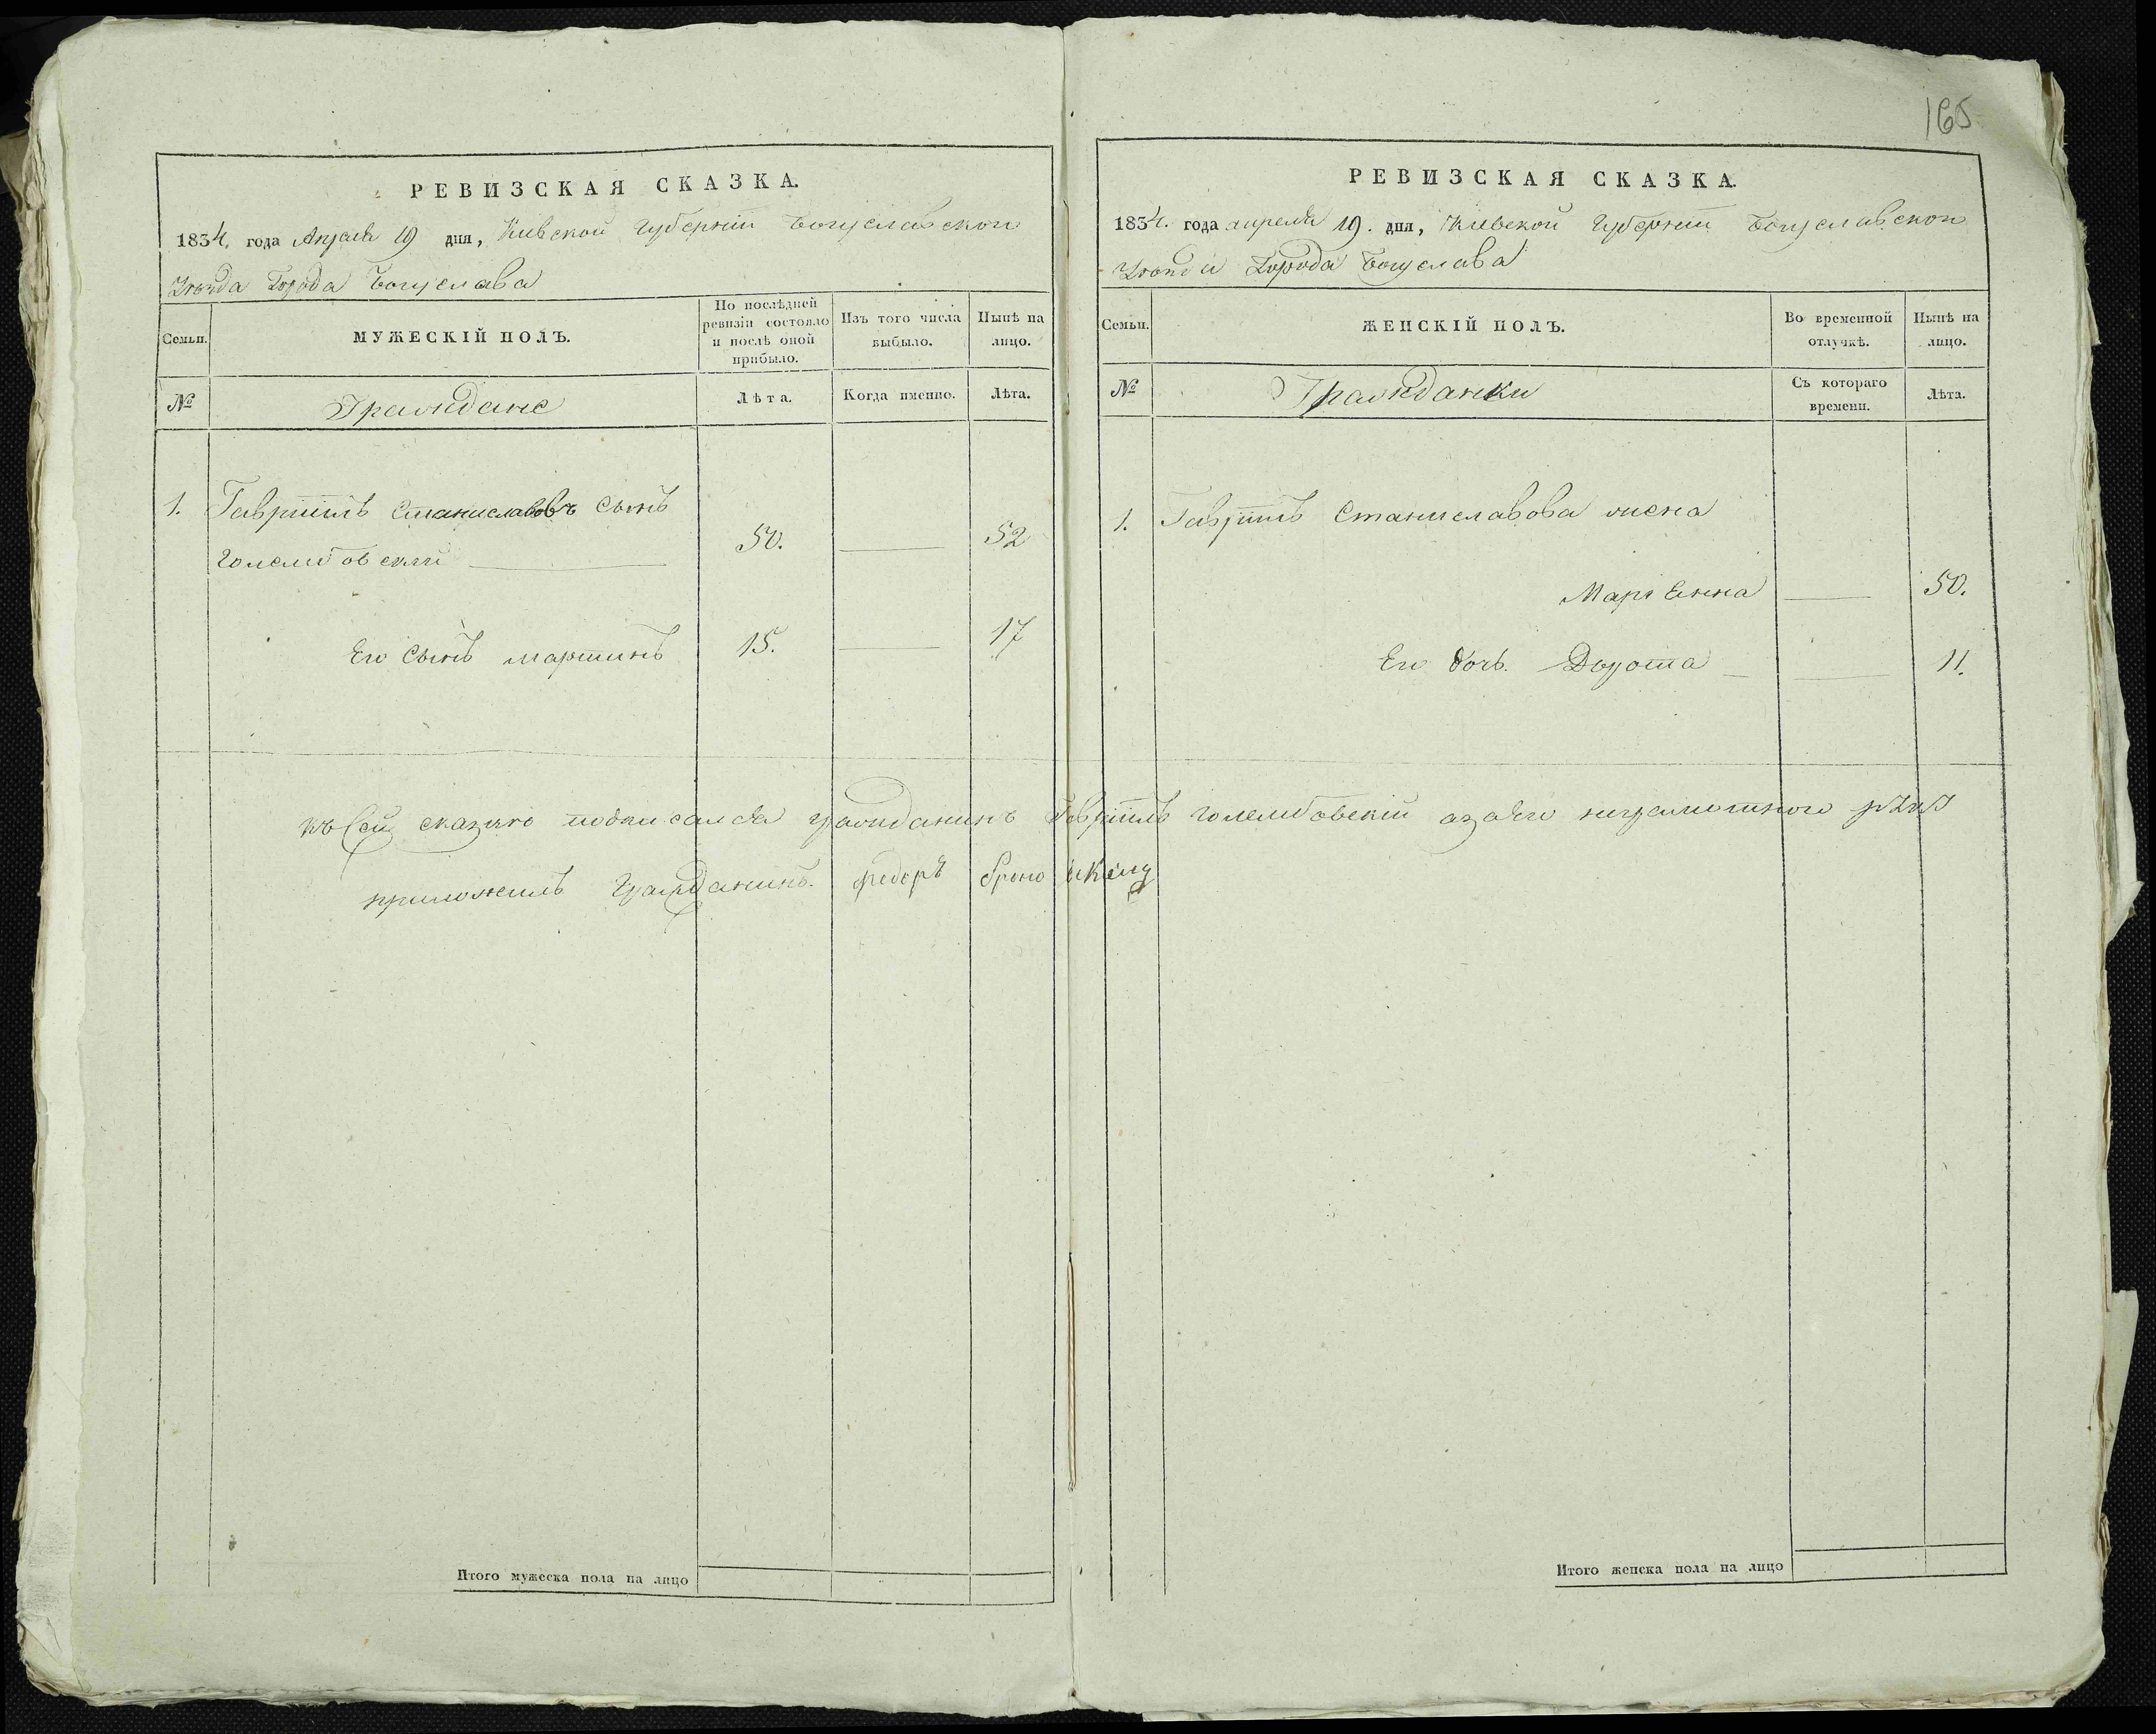 165
РЕВИЗСКАЯ СКАЗКА.
1834. года Апреля 19 дня, Киевской Губернии Богуславского
Уезда Города Богуслава
Семьи.
МУЖЕСКІЙ ПОЛЪ.
По послѣдней ревизіи состояло и послѣ оной прибыло.
Изъ того числа выбыло.
Нынѣ на лицо.
№
Граждане
Лѣта.
Когда именно.
Лѣта.
1. Гавріилъ Станиславовъ Сынъ
50. 52
Его Сынъ мартинъ 15. 17
къ Сей сказки подписался гражданинъ Гавріилъ а за его неграмотного
приложилъ Гражданинъ федоръ
Итого мужеска пола на лицо
РЕВИЗСКАЯ СКАЗКА.
1834. года апреля 19. дня, Киевской Губернии Богуславского
Уезда Города Богуслава
Семьи.
ЖЕНСКІЙ ПОЛЪ.
Во временной отлучкѣ.
Нынѣ на лицо.
№
Гражданки
Съ котораго времени.
Лѣта.
1. Гавріилъ Станиславова жена
Маріенна 50.
Его дочь. Дорота 11.
Итого женска пола на лицо